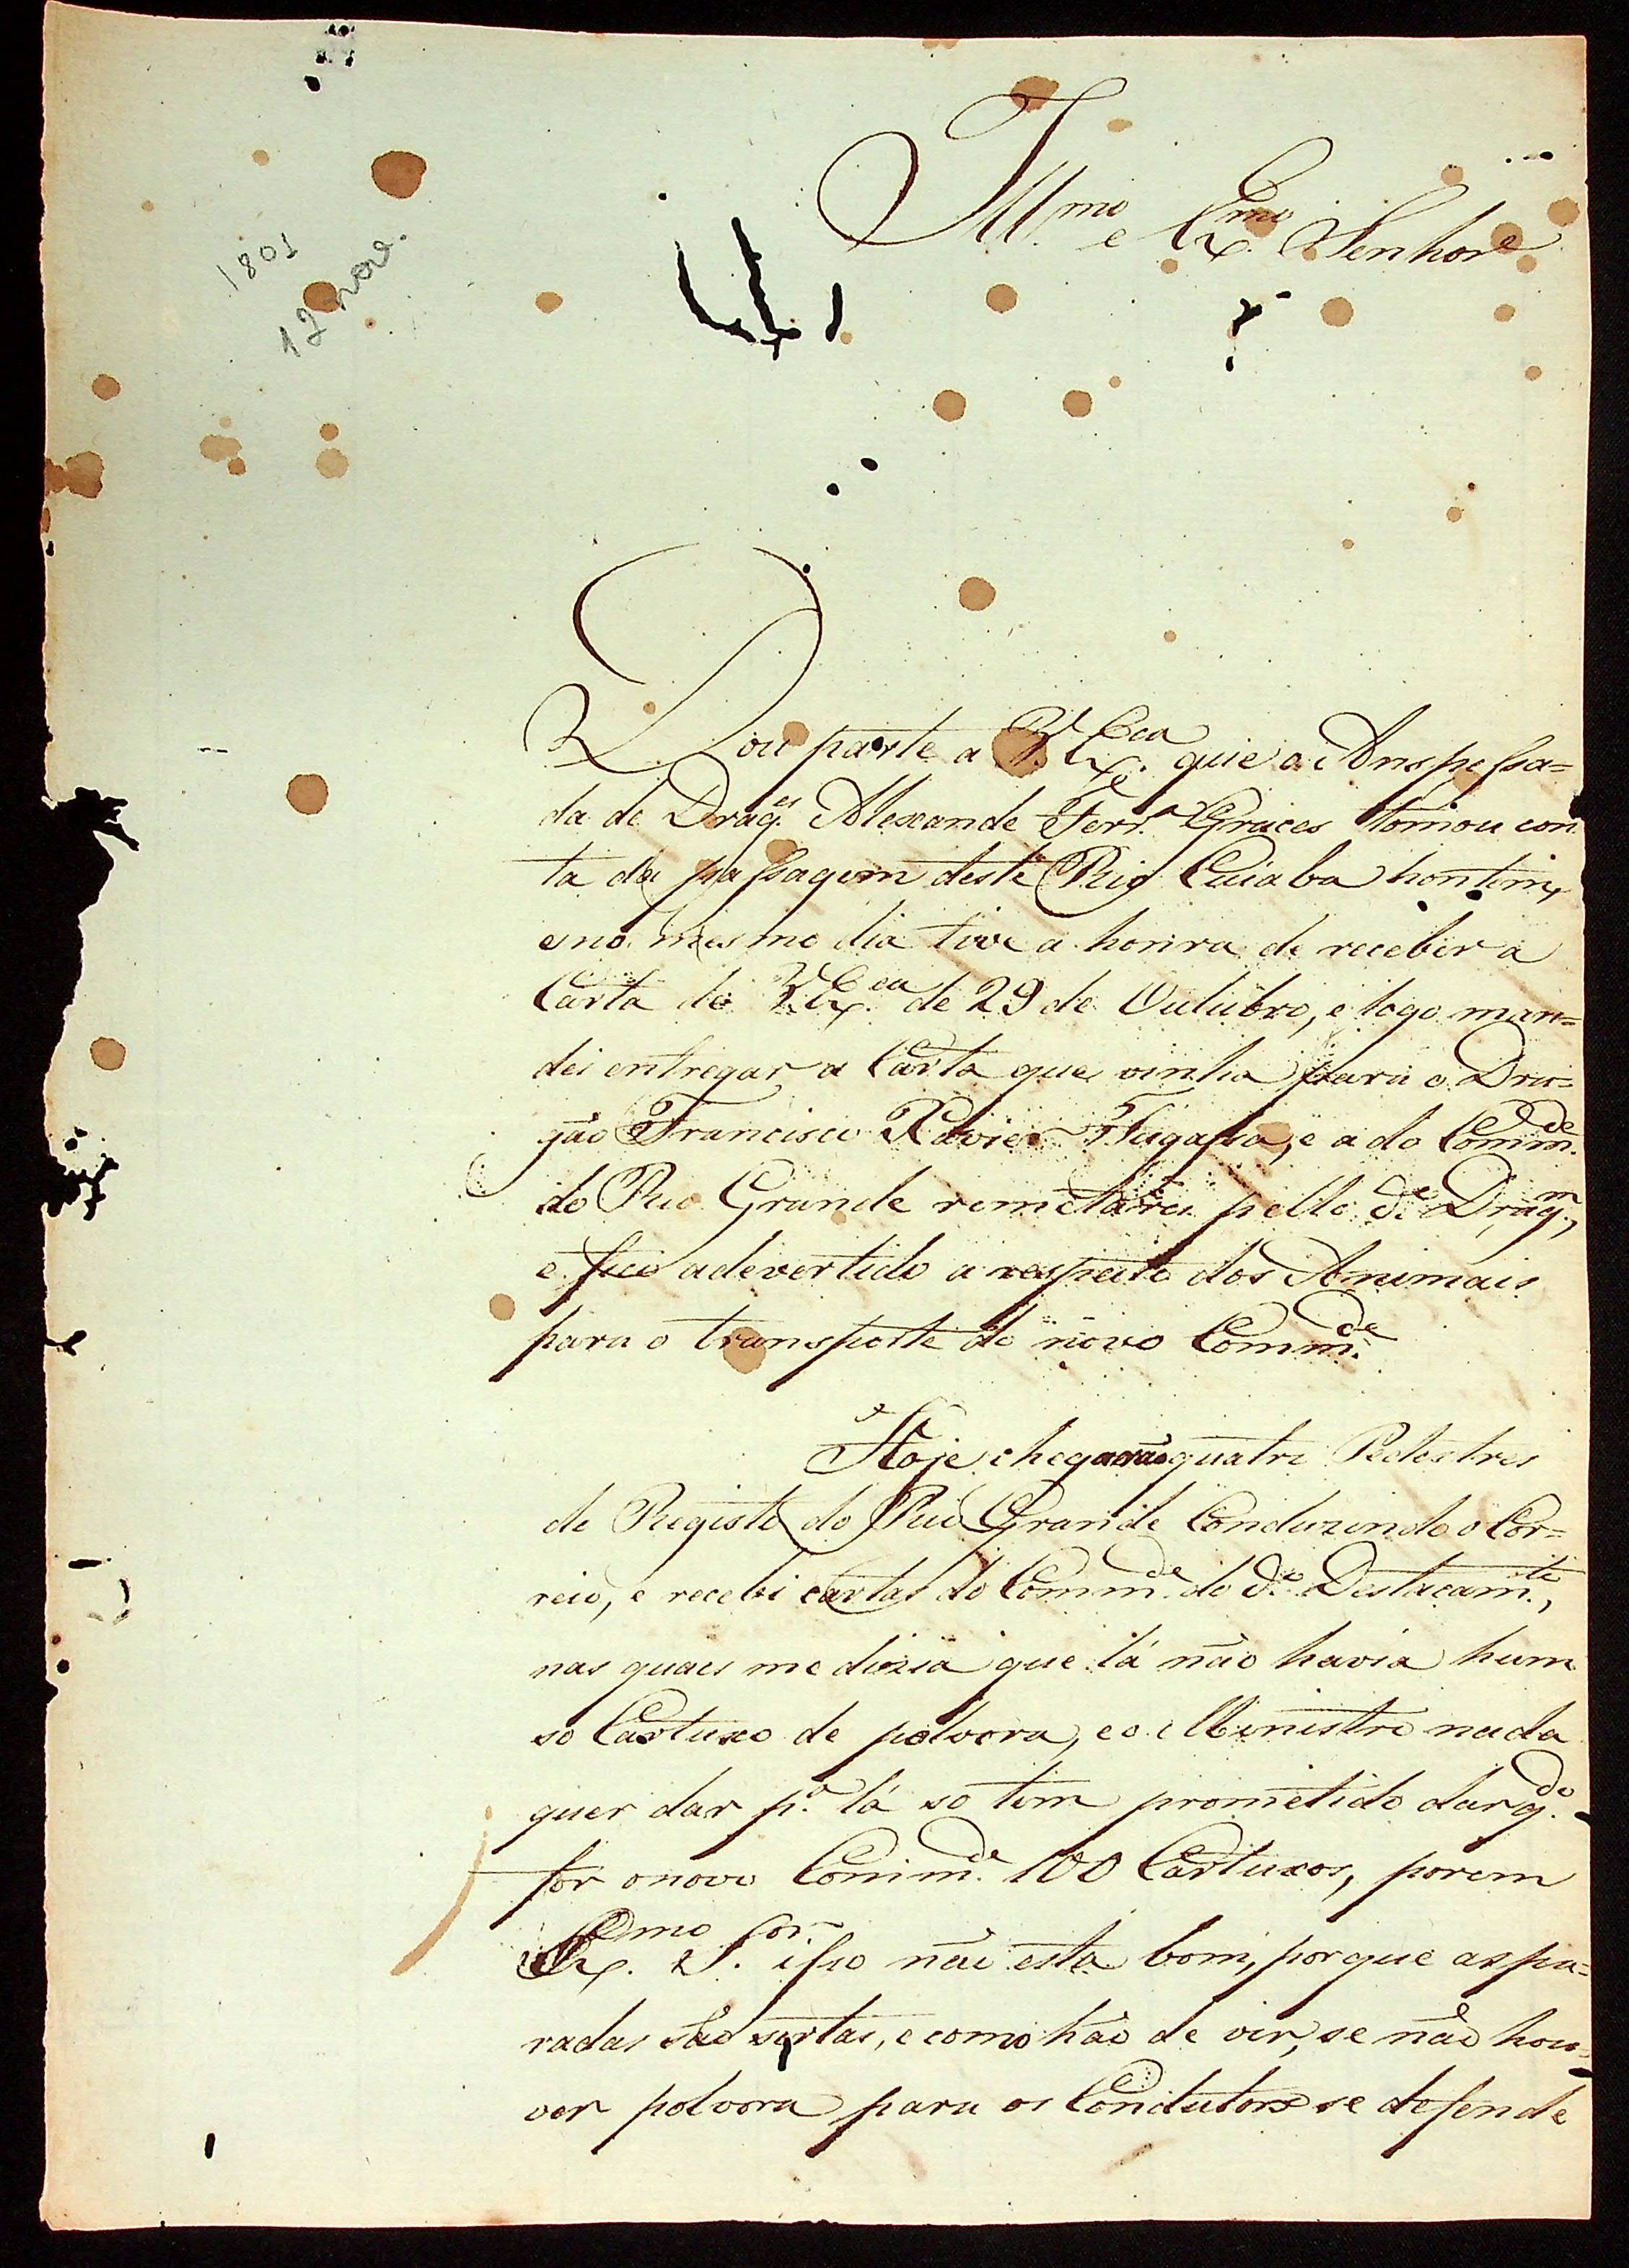 1801
12 nov.
Ill.mo e Ex.mo Senhor
Dou parte a V. Ex.ca que o Anspessa=
da de Drag.es Alexande Ferr.a Graces tomou con
ta da passagem deste Rio Cuiaba hontem,
e no mesmo dia tive a honra de receber a
Carta de V. Ex.ca de 29 de Outubro, e logo man=
dei entregar a Carta que vinha para o Dra=
gão Francisco Xavier Fugassa, e a do Comm.de
do Rio Grande remetarei pello d.o Drag.m,
e fico adevertido a respeito dos Animais
para o transporte do novo Comm.de
Hoje chegarão quatro Pedestres
do Registo do Rio Grande Conduzindo o Cor=
reio, e recebi cartas do Comm.de do d.o Destacam.to,
nas quaes me dizia que lá não havia hum
so Cartuxo de polvora, e o Ministro nada
quer dar p.a lá so tem prometido dar q.do
for o novo Comm.de 100 Cartuxos, porem
Ex.mo S.or isso não esta bom, porque as pa=
radas são sertas, e como hão de vir, se não hou=
ver polvora para os Condutores se defende